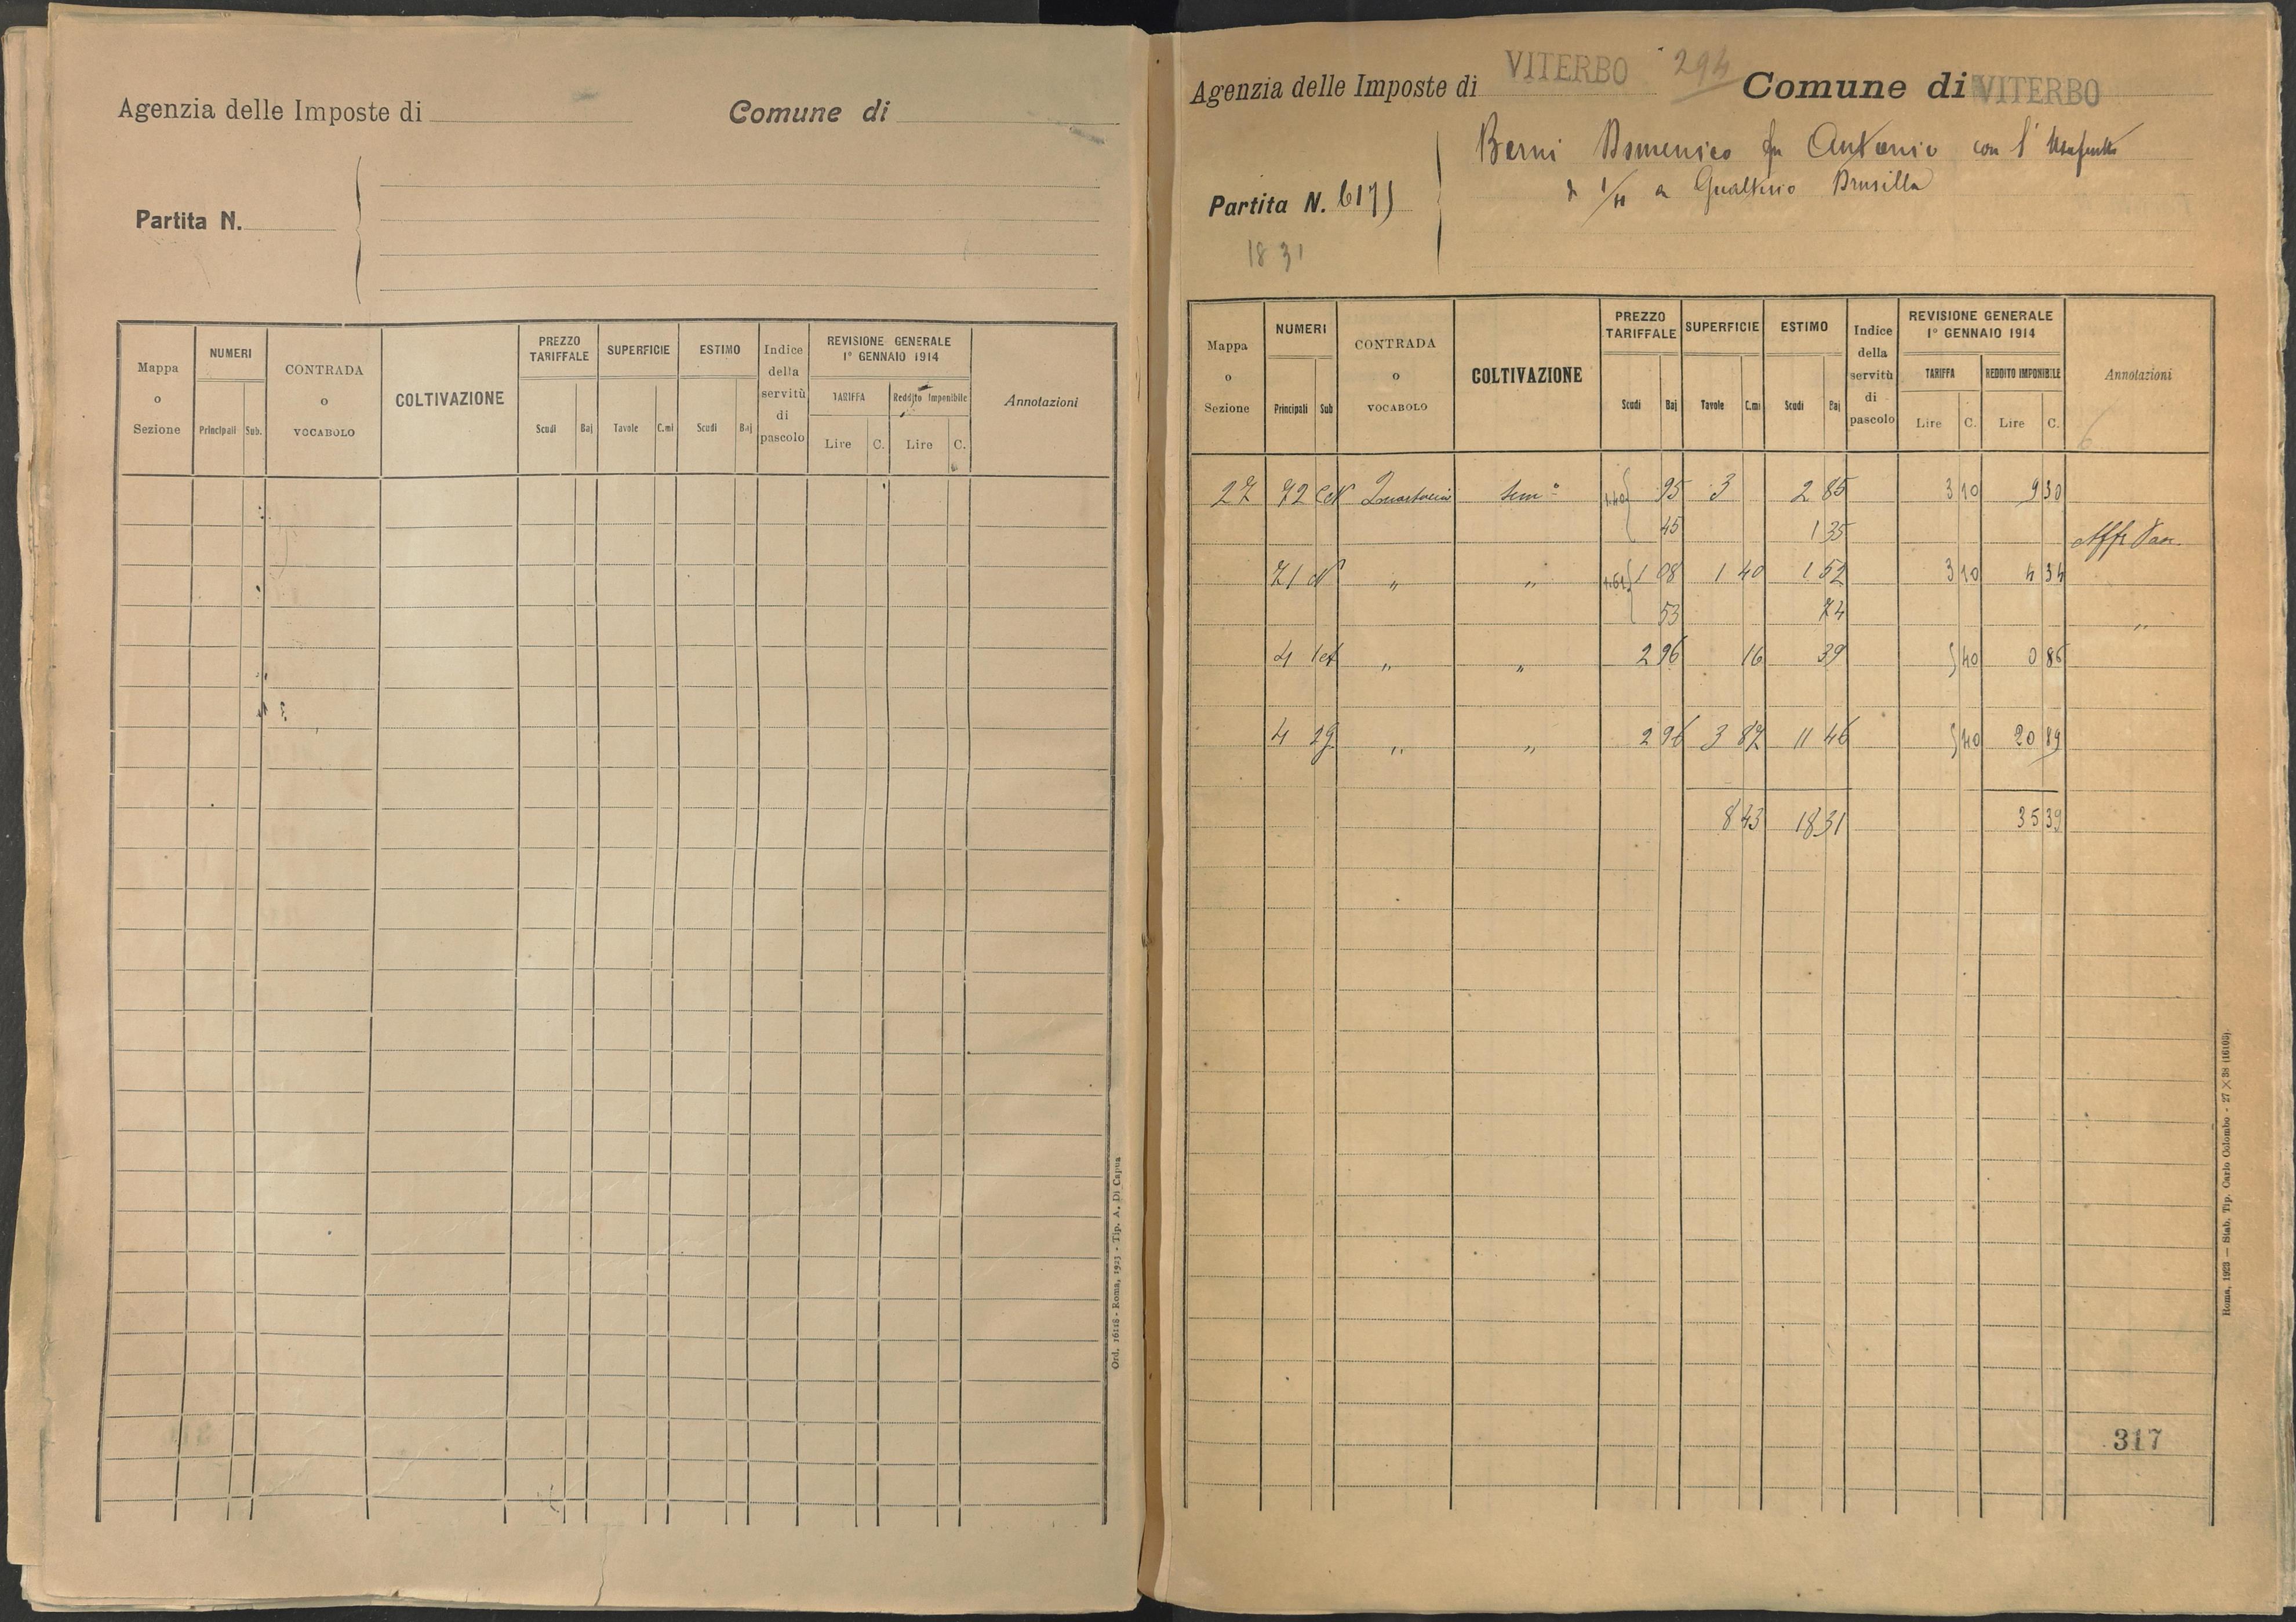 Agenzia delle Imposte di
Comune di
Partita N.
Mappa o Sezione
NUMERI
Principali Sub.
CONTRADA o VOCABOLO
COLTIVAZIONE
PREZZO TARIFFALE
Scudi Baj
SUPERFICIE
Tavole C.mi
ESTIMO
Scudi Baj
Indice della servitù di pascolo
REVISIONE GENERALE
1° GENNAIO 1914
TARIFFA
Lire C.
Reddito Imponibile
Lire C.
Annotazioni
Ord. 16118 - Roma, 1923 - Tip. A. Di Capua
Agenzia delle Imposte di VITERBO 294 Comune di VITERBO
Berni Domenico fu Antonio con l'usufrutto
di a Gualterio Drusilla
Partita N. 6175
1831
Mappa o Sezione
NUMERI
Principali Sub
CONTRADA o VOCABOLO
COLTIVAZIONE
PREZZO TARIFFALE
Scudi Baj
SUPERFICIE
Tavole C.mi
ESTIMO
Scudi Baj
Indice della servitù di pascolo
REVISIONE GENERALE
1° GENNAIO 1914
TARIFFA
Lire C.
REDDITO IMPONIBILE
Lire C.
Annotazioni
27 72 Sem° 1.40 95 3 2 85 3 10 9 30
45 1 35 Affr
71 " " 1.61 1 08 1 40 1 52 3 10 4 34
53 74 "
4 " " 2 96 16 39 5 40 0 86
4 29 " " 2 96 3 87 11 46 5 40 20 89
8 43 18 31 35 39
317
Roma, 1923 — Stab. Tip. Carlo Colombo - 27 × 38 (16103).